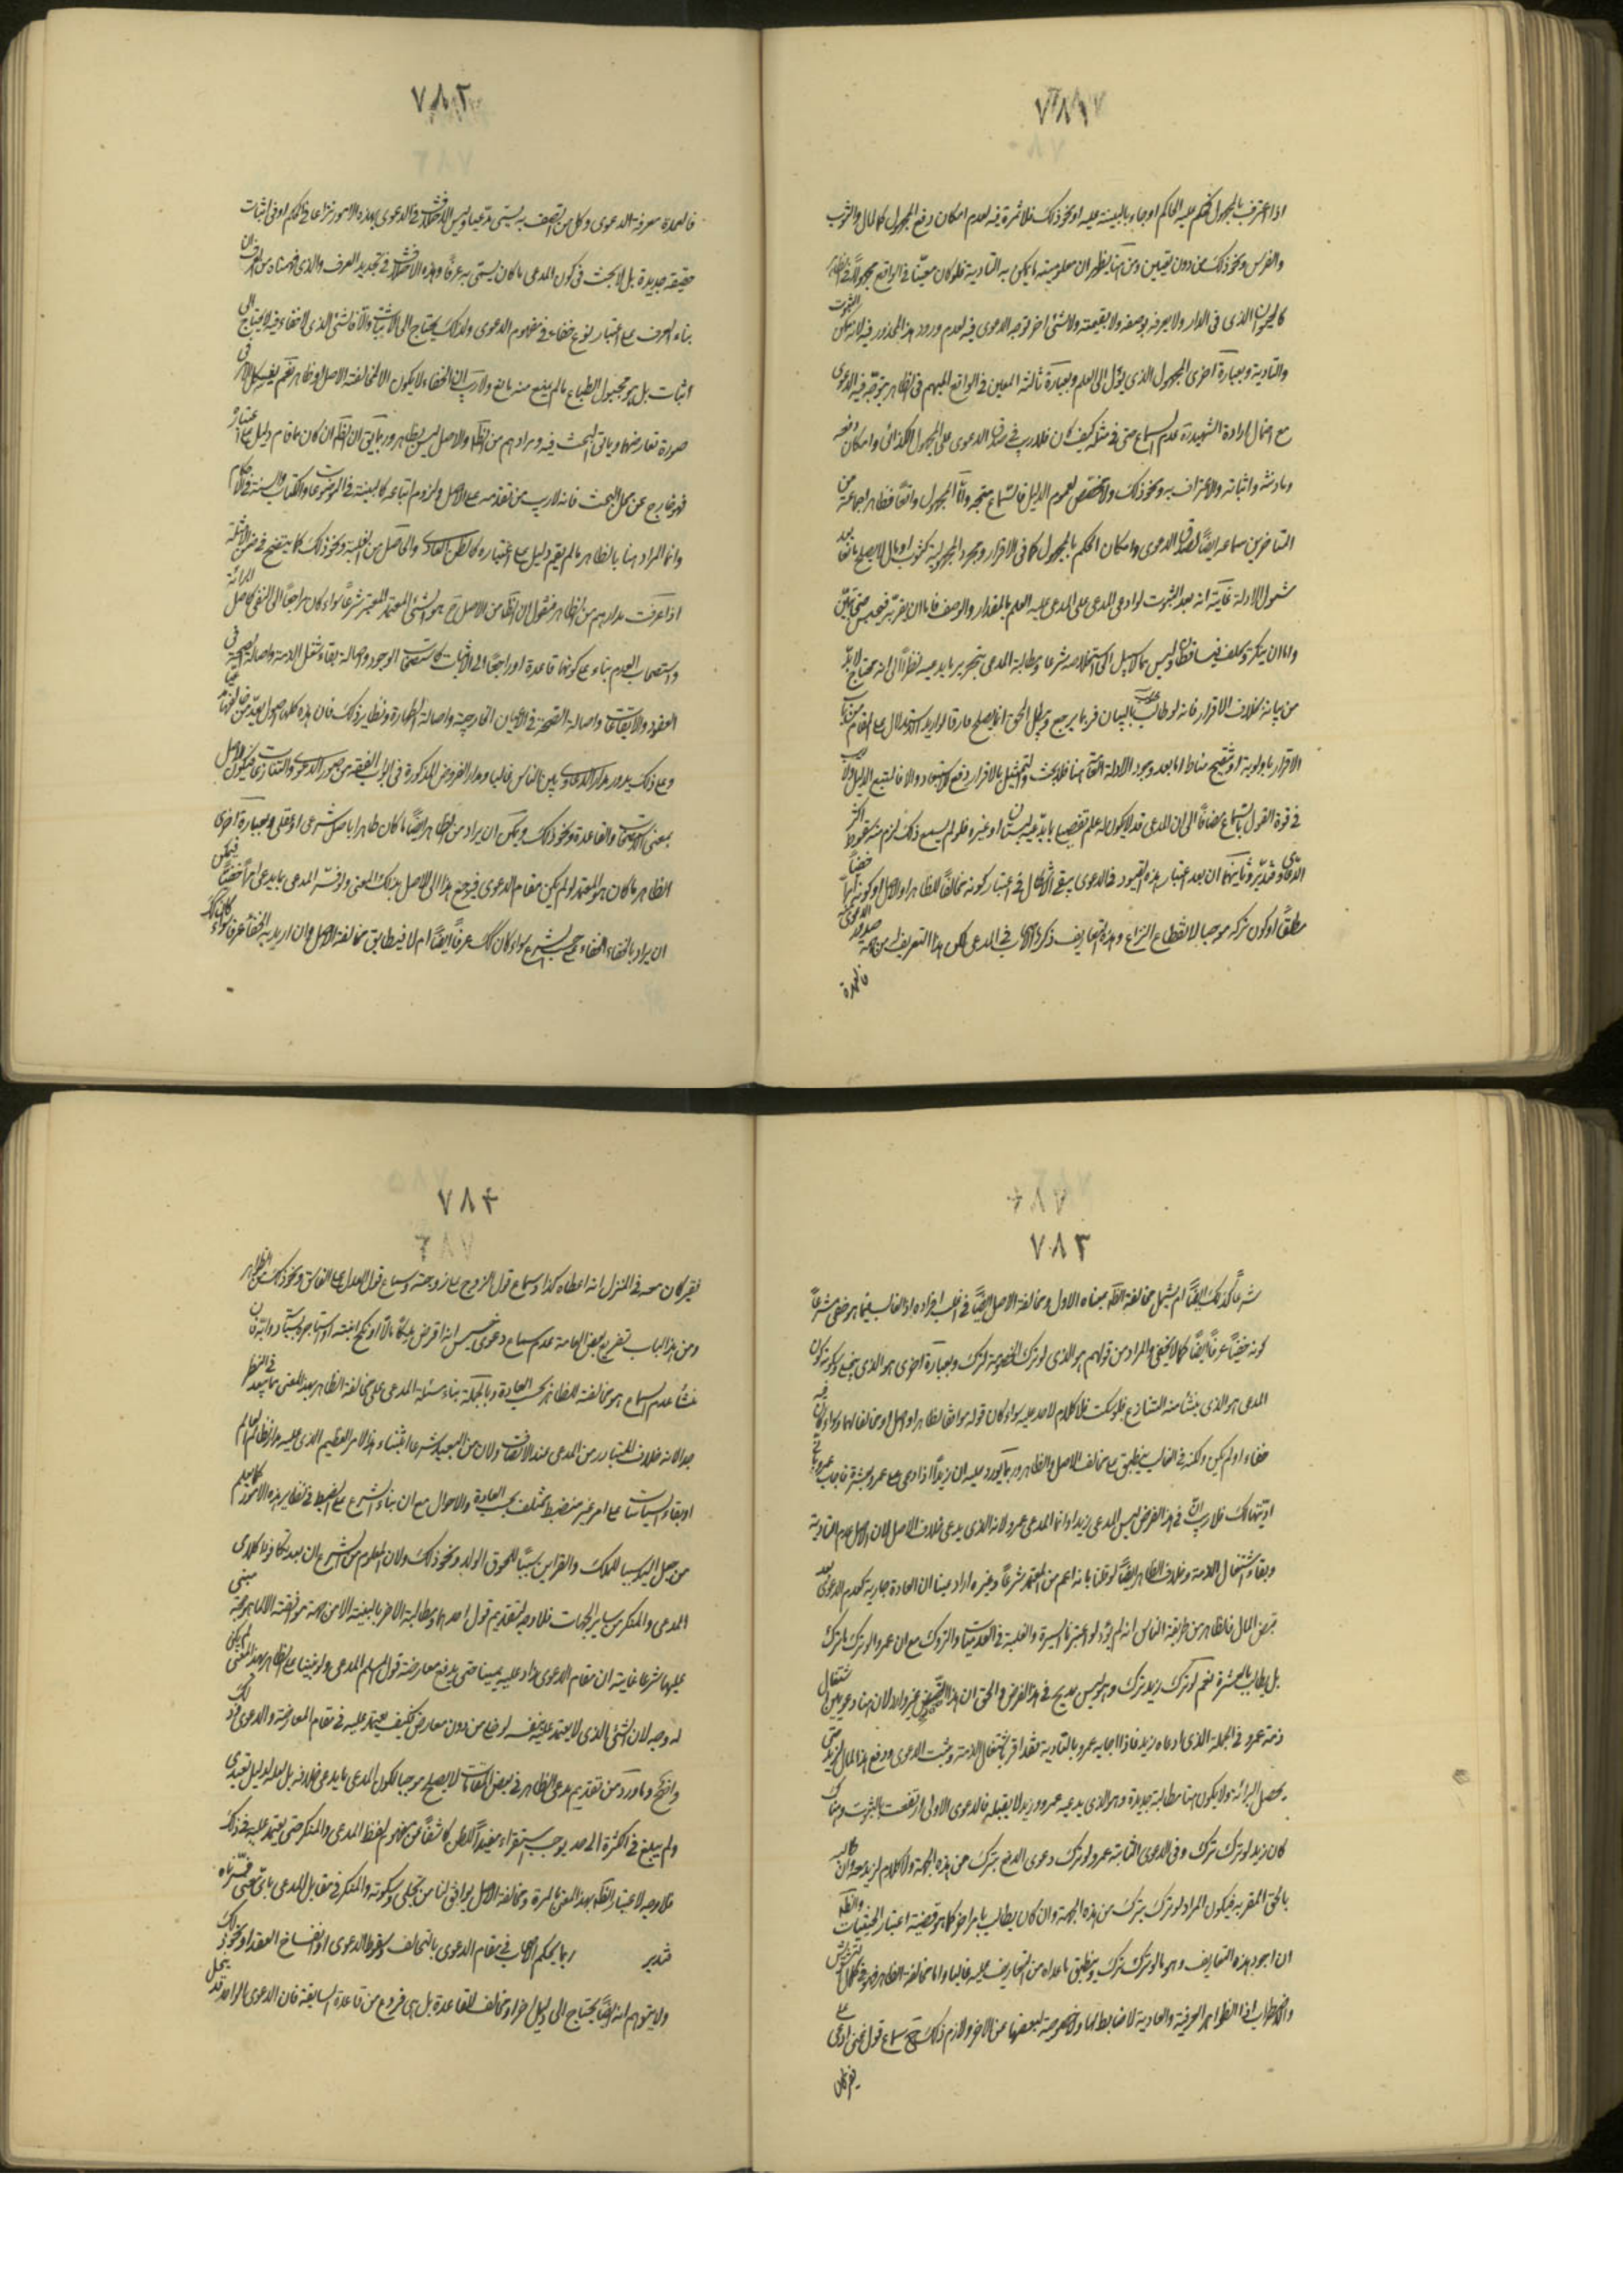 ٧٨١
اذا اعترف بالمجهول حكم عليه الحاكم او جاء بالبينة عليه او نحو ذلك فلا ثمرة فيه لعدم امكان دفع المجهول كالمال والثوب
والفرس ونحو ذلك من دون تعيين ومن هنا يظهر ان معلوميته ما يمكن به التأدية فلو كان معينا في الواقع مجهولا في الظاهر
كالحيوان الذي في الدار ولا يعرفه بوصفه ولا بقيمته ولا بشئ اخر توجه الدعوى فيه لعدم ورود هذا المحذور فيه لانه يمكن الثبوت
والتأدية وبعبارة اخرى المجهول الذي يؤل الى العلم وبعبارة ثالثة المعين في الواقع المبهم في الظاهر يتوجه فيه الدعوى
مع احتمال ارادة الشهيد عدم السماع حتى في مثله كيف كان فلا ريب في صدق الدعوى على المجهول كذلك وامكان
واثباته والاعتراف به ونحو ذلك ولا مخصص لعموم الدليل فالسماع متجه واما المجهول واقعا فظاهر جماعة من
المتأخرين سماعه ايضا لصدق الدعوى وامكان الحكم بالمجهول كما في الاقرار ومجرد المجهولية كثوب او مال لا يصلح مانعا بعد
شمول الادلة غايته انه بعد الثبوت لو ادعى المدعى على المدعى عليه العلم بالمقدار والوصف فاما ان يقر به فيحبس حتى يبين
واما ان ينكر ويحلف فيسقط وليس كما لا سبيل الى استخلاصه شرعا ومطالبة المدعى بتحرير ما يدعيه نظرا الى انه محتاج لا بد
من بيانه بخلاف الاقرار فانه لو طالب بالبيان فربما يرجع ويبطل الحق انما يصلح فارقا لو اريد الاستدلال على المقام من باب
الاقرار باولوية او تنقيح مناط اما بعد وجود الادلة العامة هنا فلا بحث والتمثيل بالاقرار رفع للاستبعاد والا فالمتبع الدليل ولا ريب
في قوة القول بالسماع مضافا الى ان المدعى قد لا يكون له علم تفصيلا بما يدعيه لنسيان او غيره فلو لم يسمع ذلك لزم سقوط اكثر
الدعاوى فتدبر وثانيهما ان بعد اعتبار هذه القيود في الدعوى يبقى الاشكال في اعتبار كونه مخالفا للظاهر او الاصل او كونه امرا خفيا
مطلقا او كون تركه موجبا لانقطاع النزاع وهذه التعاريف ذكره الاصحاب في المدعى لكن هذا التعريف من جهة صدور الدعوى منه
فالعمدة
٧٨٢
فالعمدة معرفة الدعوى وكل من اتصف به يسمى مدعيا وليس الاختلاف في الدعوى بهذه الامور نزاعا في الحكم او في اثبات
حقيقة جديدة بل لا بحث في كون المدعى ما كان يسمى به عرفا وهذه الاختلافات في تحديد العرف والذي فهمناه من العرف ان
بناء العرف على اعتبار نوع خفاء في مفهوم الدعوى ولذلك يحتاج الى الاثبات والا فالشئ الذي لا خفاء فيه لا يحتاج الى
اثبات بل هو مجبول الطباع ما لم يمنع منه مانع ولا ريب ان الخفاء لا يكون الا لمخالفة الاصل او ظاهر نعم يشكل الامر في
صورة تعارضهما ويأتي البحث فيه ومرادهم من الظاهر والاصل ليس بظاهر وربما يقال ان الظاهر ان كان مما قام دليل على اعتباره
فهو خارج عن محل البحث فانه لا ريب من تقدمه على الاصل ولزوم اتباعه كالبينة في الموضوعات والكتاب والسنة في الاحكام
وانما المراد هنا بالظاهر ما لم يقم دليل على اعتباره كالظن العادي والحاصل من الغلبة ونحو ذلك كما يتضح في ضمن الامثلة
اذا عرفت مرادهم من الظاهر فنقول ان الظاهر من الاصل ح هو الشئ المعتمد المعتبر شرعا سواء كان راجعا الى النفي كاصل البرائة
واستصحاب العدم بناء على كونهما قاعدة او راجعا الى الاثبات كاستصحاب الوجود واصالة بقاء شغل الذمة واصالة الصحة في
العقود والايقاعات واصالة الصحة في الاعيان الخارجية واصالة الطهارة ونظاير ذلك فان هذه كلها اصول
وعلى ذلك يدور مدار الدعاوى بين الناس غالبا ومدار الفروض المذكورة في ابواب الفقه من صور الدعوى والتنازع فيكون الاصل
بمعنى الاستصحاب والقاعدة ونحو ذلك ويمكن ان يراد من الظاهر ايضا ما كان ظاهرا باصل شرعي او عقلي وبعبارة اخرى
الظاهر ما كان هو المعتمد لو لم يكن مقام الدعوى فيرجع هذا الى الاصل بذلك المعنى ولو فسر المدعى بما يدعى امرا خفيا فيمكن
ان يراد بالخفاء الخفاء بحسب الشرع سواء كان كذلك عرفا ايضا ام لا فيطابق مخالفة الاصل وان اريد به الخفاء عرفا سواء كان كذلك
٧٨٣
شرعا كذلك ايضا ام يشمل مخالفة الظاهر بمعناه الاول ومخالفة الاصل ايضا في اغلب افراده اذ الغالب فيما هو خفي شرعا
كونه خفيا عرفا ايضا كما لا يخفى والمراد من قولهم هو الذي لو ترك الخصومة ترك وبعبارة اخرى هو الذي يخلى وسكوته كون
المدعى هو الذي ينشأ منه التنازع فلو سكت فلا كلام لاحد عليه سواء كان قوله موافق لظاهر او اصل او مخالفا لهما وسواء كان فيه
خفاء او لم يكن ولكنه في الغالب ينطبق على مخالف الاصل والظاهر وربما يورد عليه ان زيدا اذا ادعى على عمرو بعشرة فاجاب عمرو باني
اديتها لك فلا ريب ان في هذا الفرض ليس المدعى زيدا وانما المدعى عمرو لانه الذي يدعى خلاف الاصل لان الاصل عدم التأدية
وبقاء اشتغال الذمة وخلاف الظاهر ايضا لو قلنا بانه اعم من المعتمد شرعا وغيره اراد مبنيا ان العادة جارية بعدم الدعوى بعد
قبض المال فالظاهر من طريقة الناس انه لم يؤد لو اعتبرنا السيرة والغلبة في العدميات والتروك مع ان عمرو لو ترك لم يترك
بل يطالب بالعشرة نعم لو ترك زيد ترك وهو ليس بمدع في هذا الفرض والحق ان هذا النقض غير وارد لان هنا دعويين اشتغال
ذمة عمرو في الجملة الذي ادعاه زيد فاذا اجابه عمرو بالتأدية فقد اقر باشتغال الذمة وثبت الدعوى ودفع هذا المال لزيد حتى
يحصل البرائة ولا يكون هنا مطالبة جديدة وهو الذي يدعيه عمرو وزيد لا يقبله فالدعوى الاولى ارتفعت بالثبوت وهناك
كان زيد لو ترك ترك وفي الدعوى الثانية عمرو لو ترك دعوى الدفع يترك من هذه الجهة ولا كلام لزيد معه وان كالبه
بالحق المقر به فيكون المراد لو ترك يترك من هذه الجهة وان كان يطالب بامر اخر كما هو قضية اعتبار الحيثيات والظاهر
ان اجود هذه التعاريف وهو ما لو ترك ترك وينطبق ما عداه من التعاريف عليه غالبا واما مخالفة الظاهر فهو في كمال التشويش
والاضطراب اذ الظواهر العرفية والعادية لا ضابط لها ولا خصوصية لبعضها عن الاخر ولازم ذلك ح سماع قول غني ادعى على
فقير كان
٧٨٤
فقير كان معه في المنزل انه اعطاه كذا وسماع قول الزوج على زوجته وسماع قول العدل على الفاسق ونحو ذلك من الظاهر
ومن هذا الباب تفريع بعض العامة عدم سماع دعوى خسيس انه اقرض ملكا مالا او نكح ابنته او استاجره لسياسة دوابه فان
منشأ عدم السماع هو مخالفة للظاهر بحسب العادة وبالجملة بناء مسئلة المدعى على مخالفة الظاهر بهذا المعنى مما يبعد في النظر
جدا لانه خلاف المتبادر من المدعى عند الاطلاق ولان من البعيد شرعا ابتناء هذا الامر العظيم الذي عليه مدار نظام العالم
وبقاء السياسات على امر غير منضبط يختلف بحسب العادة والاحوال مع ان بناء الشرع على الضبط في نظاير هذه الامور كما يعلم
من جعل اليد سببا للملك والفراش سببا للحوق الولد ونحو ذلك ولان المعلوم من الشرع ان بعد تكافؤ كلام
المدعى والمنكر من ساير الجهات فلا وجه لتقديم قول احدهما ومطالبة الاخر بالبينة الا من جهة موافقة الاول لما هو حجة مبنى
عليها شرعا غايته ان مقام الدعوى زاد عليه يمينا حتى يدفع معارضة قول المسلم المدعى ولو بنينا على الظاهر بهذا المعنى لم يكن
له وجه لان الشئ الذي لا يعتمد عليه بنفسه لو خلي من دون معارض فكيف يعتمد عليه في مقام المعارضة والدعوى وذلك
واضح وما ورد من تقديم مدعى الظاهر في بعض المقامات لا يصلح موجبا لكون المدعى ما يدعى خلافه بل لعله لدليل تعبدي
ولم يبلغ في الكثرة الى حد يوجب استقراء مفيدا للظن كاشفا عن مفهوم لفظ المدعى والمنكر حتى يعتمد عليه في ذلك
فلا وجه لاعتبار الظاهر بهذا المعنى بالمرة ومخالفة الاصل يوافق لنا من يخلى وسكوته والمنكر في مقابل المدعى باي معنى فسرناه
فتدبر ربما يحكم الاصحاب في مقام الدعوى بالتحالف وسقوط الدعوى او انفساخ العقد او نحو ذلك
ولا يتوهم انه ايضا يحتاج الى دليل اخر او مخالف للقاعدة بل هي فروع من قاعدة السابقة فان الدعوى الواحد قد ينحل